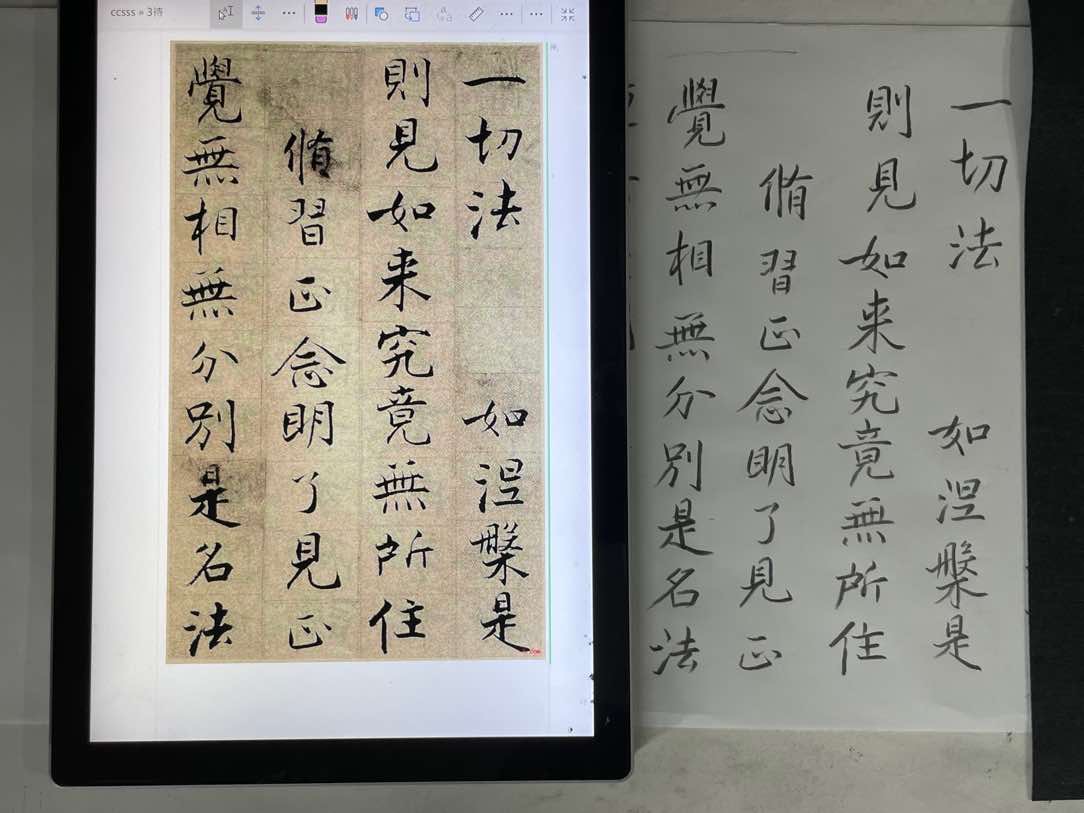 ccsss » 3待
一切法 如涅槃是
則見如来究竟無所住
脩習正念明了見正
覺無相無分別是名法
一切法 如涅槃是
則見如来究竟無所住
脩習正念明了見正
覺無相無分別是名法